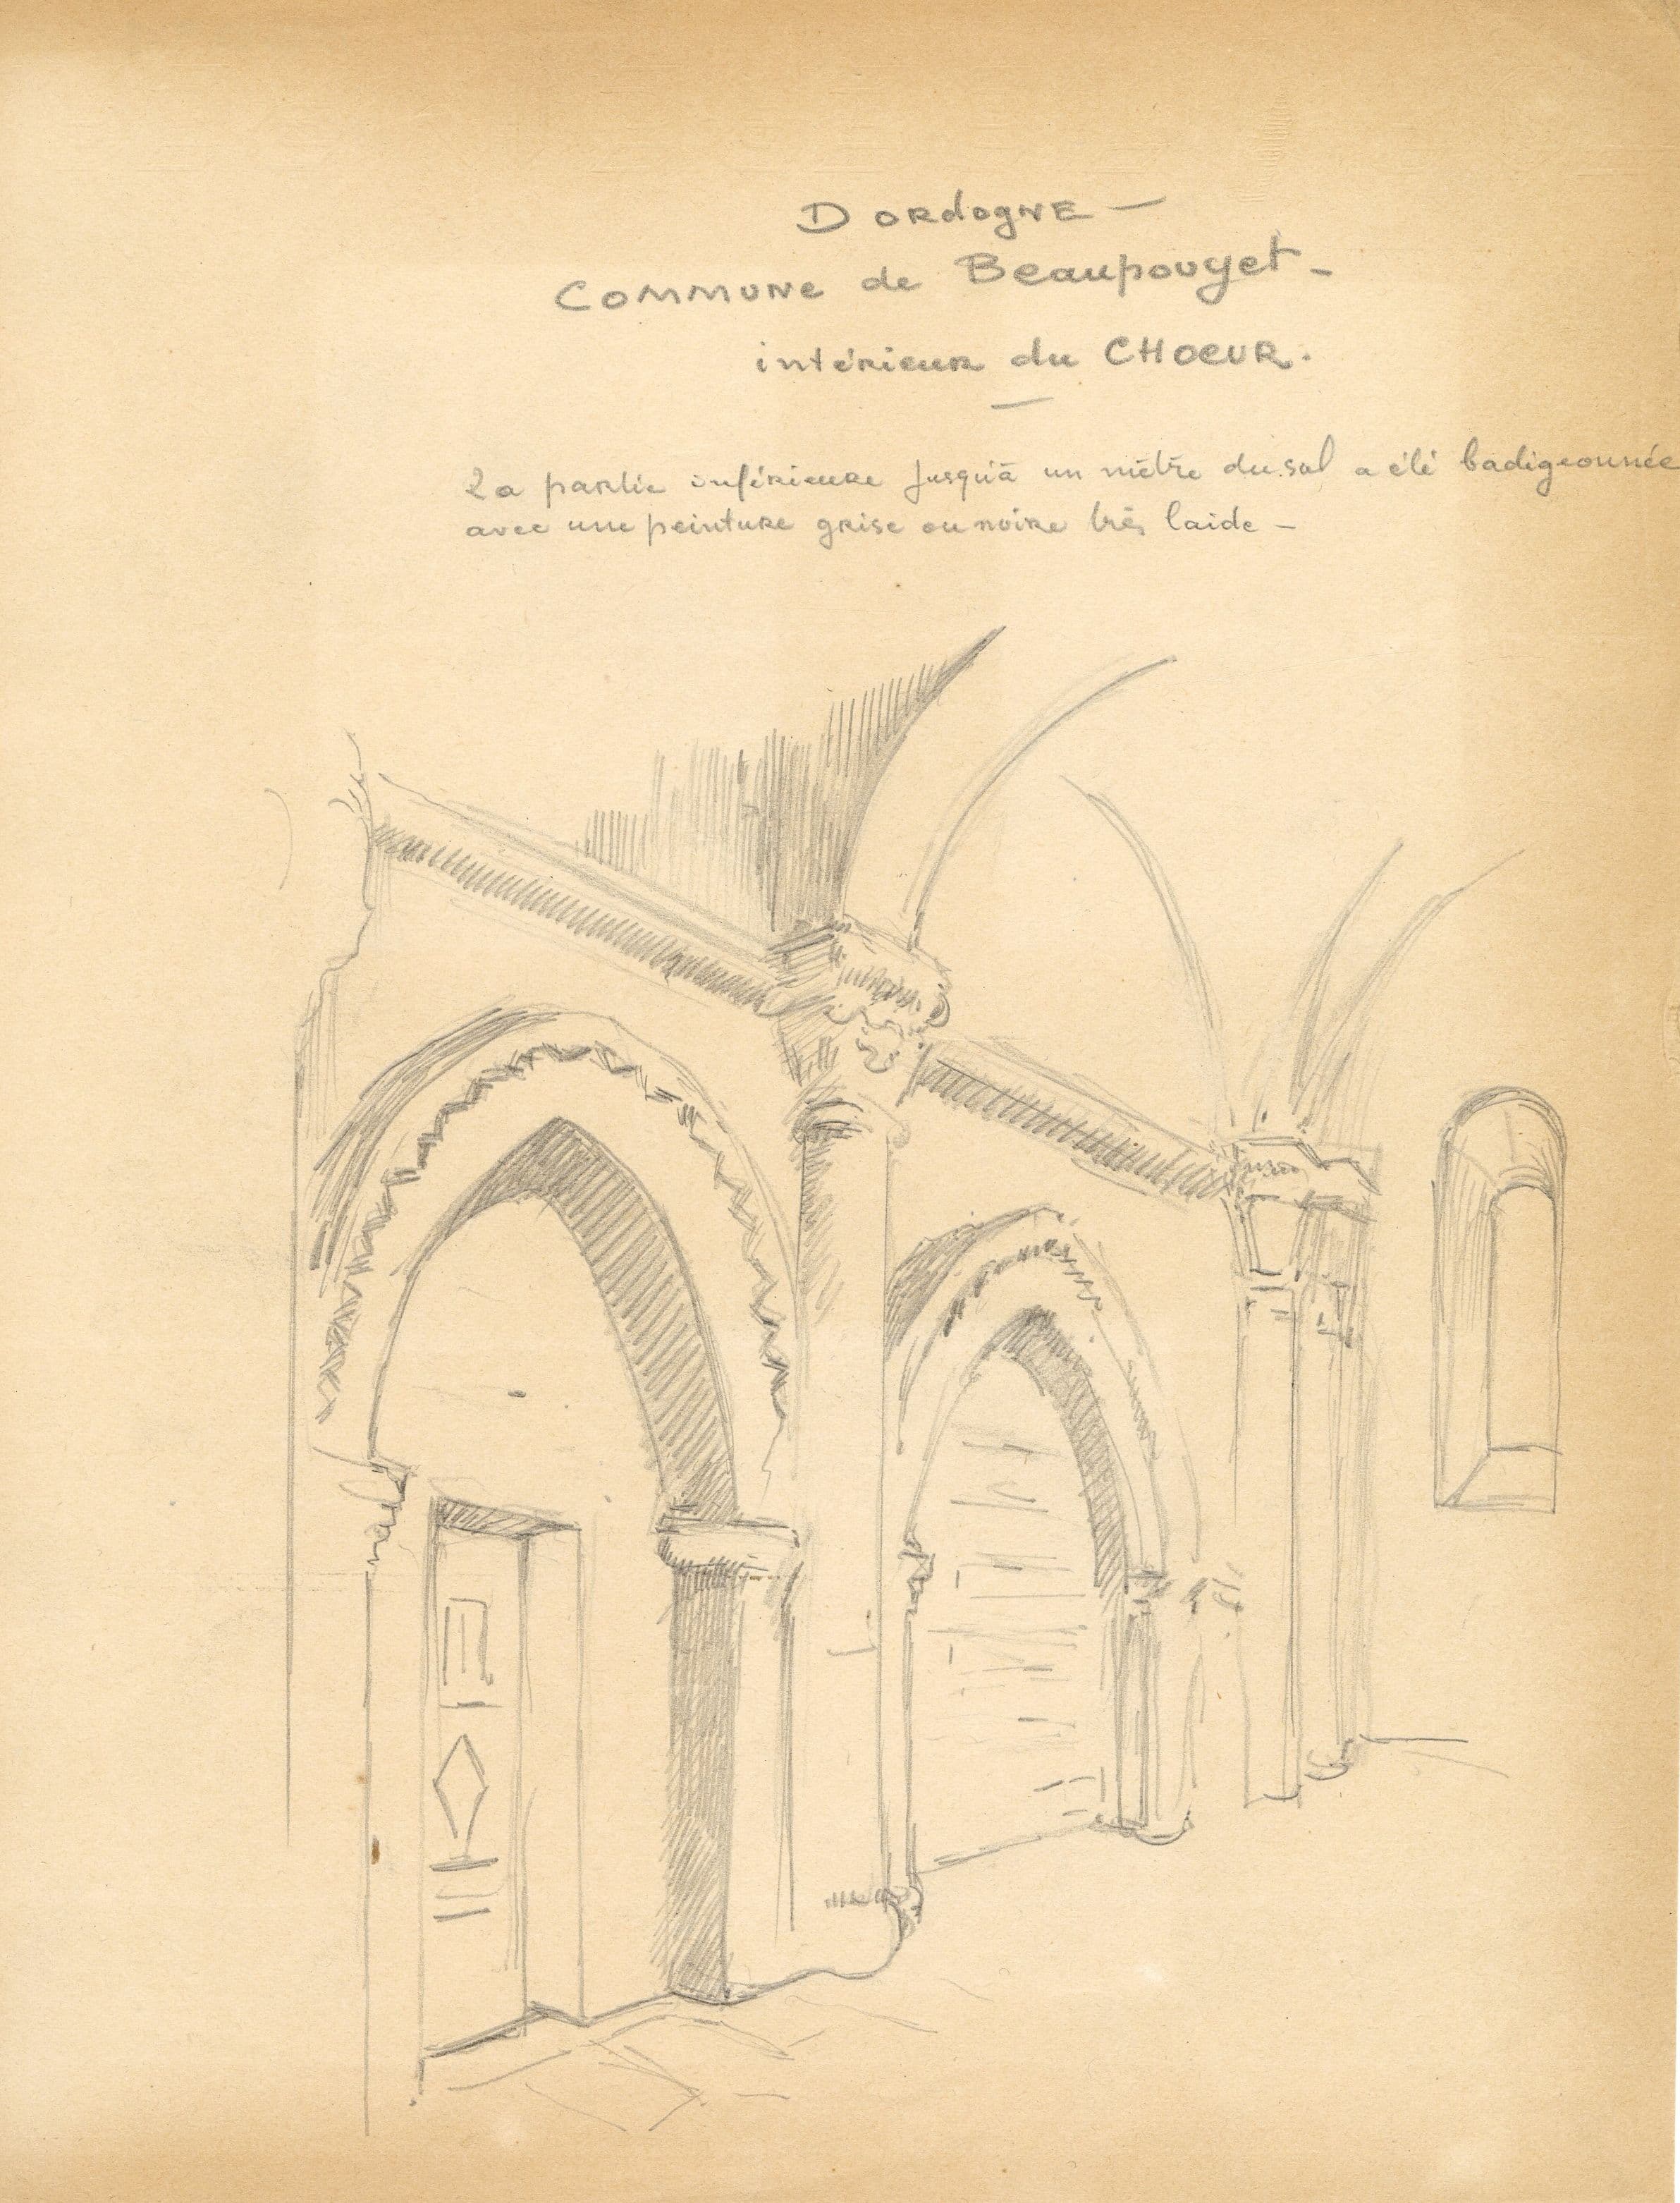 DORdogNE —
COMMUNE de Beaupouyet -
intérieur du CHOEUR.
La partie inférieure jusqu'à un mètre du sol a été badigeonnée
avec une peinture grise ou noire très laide -